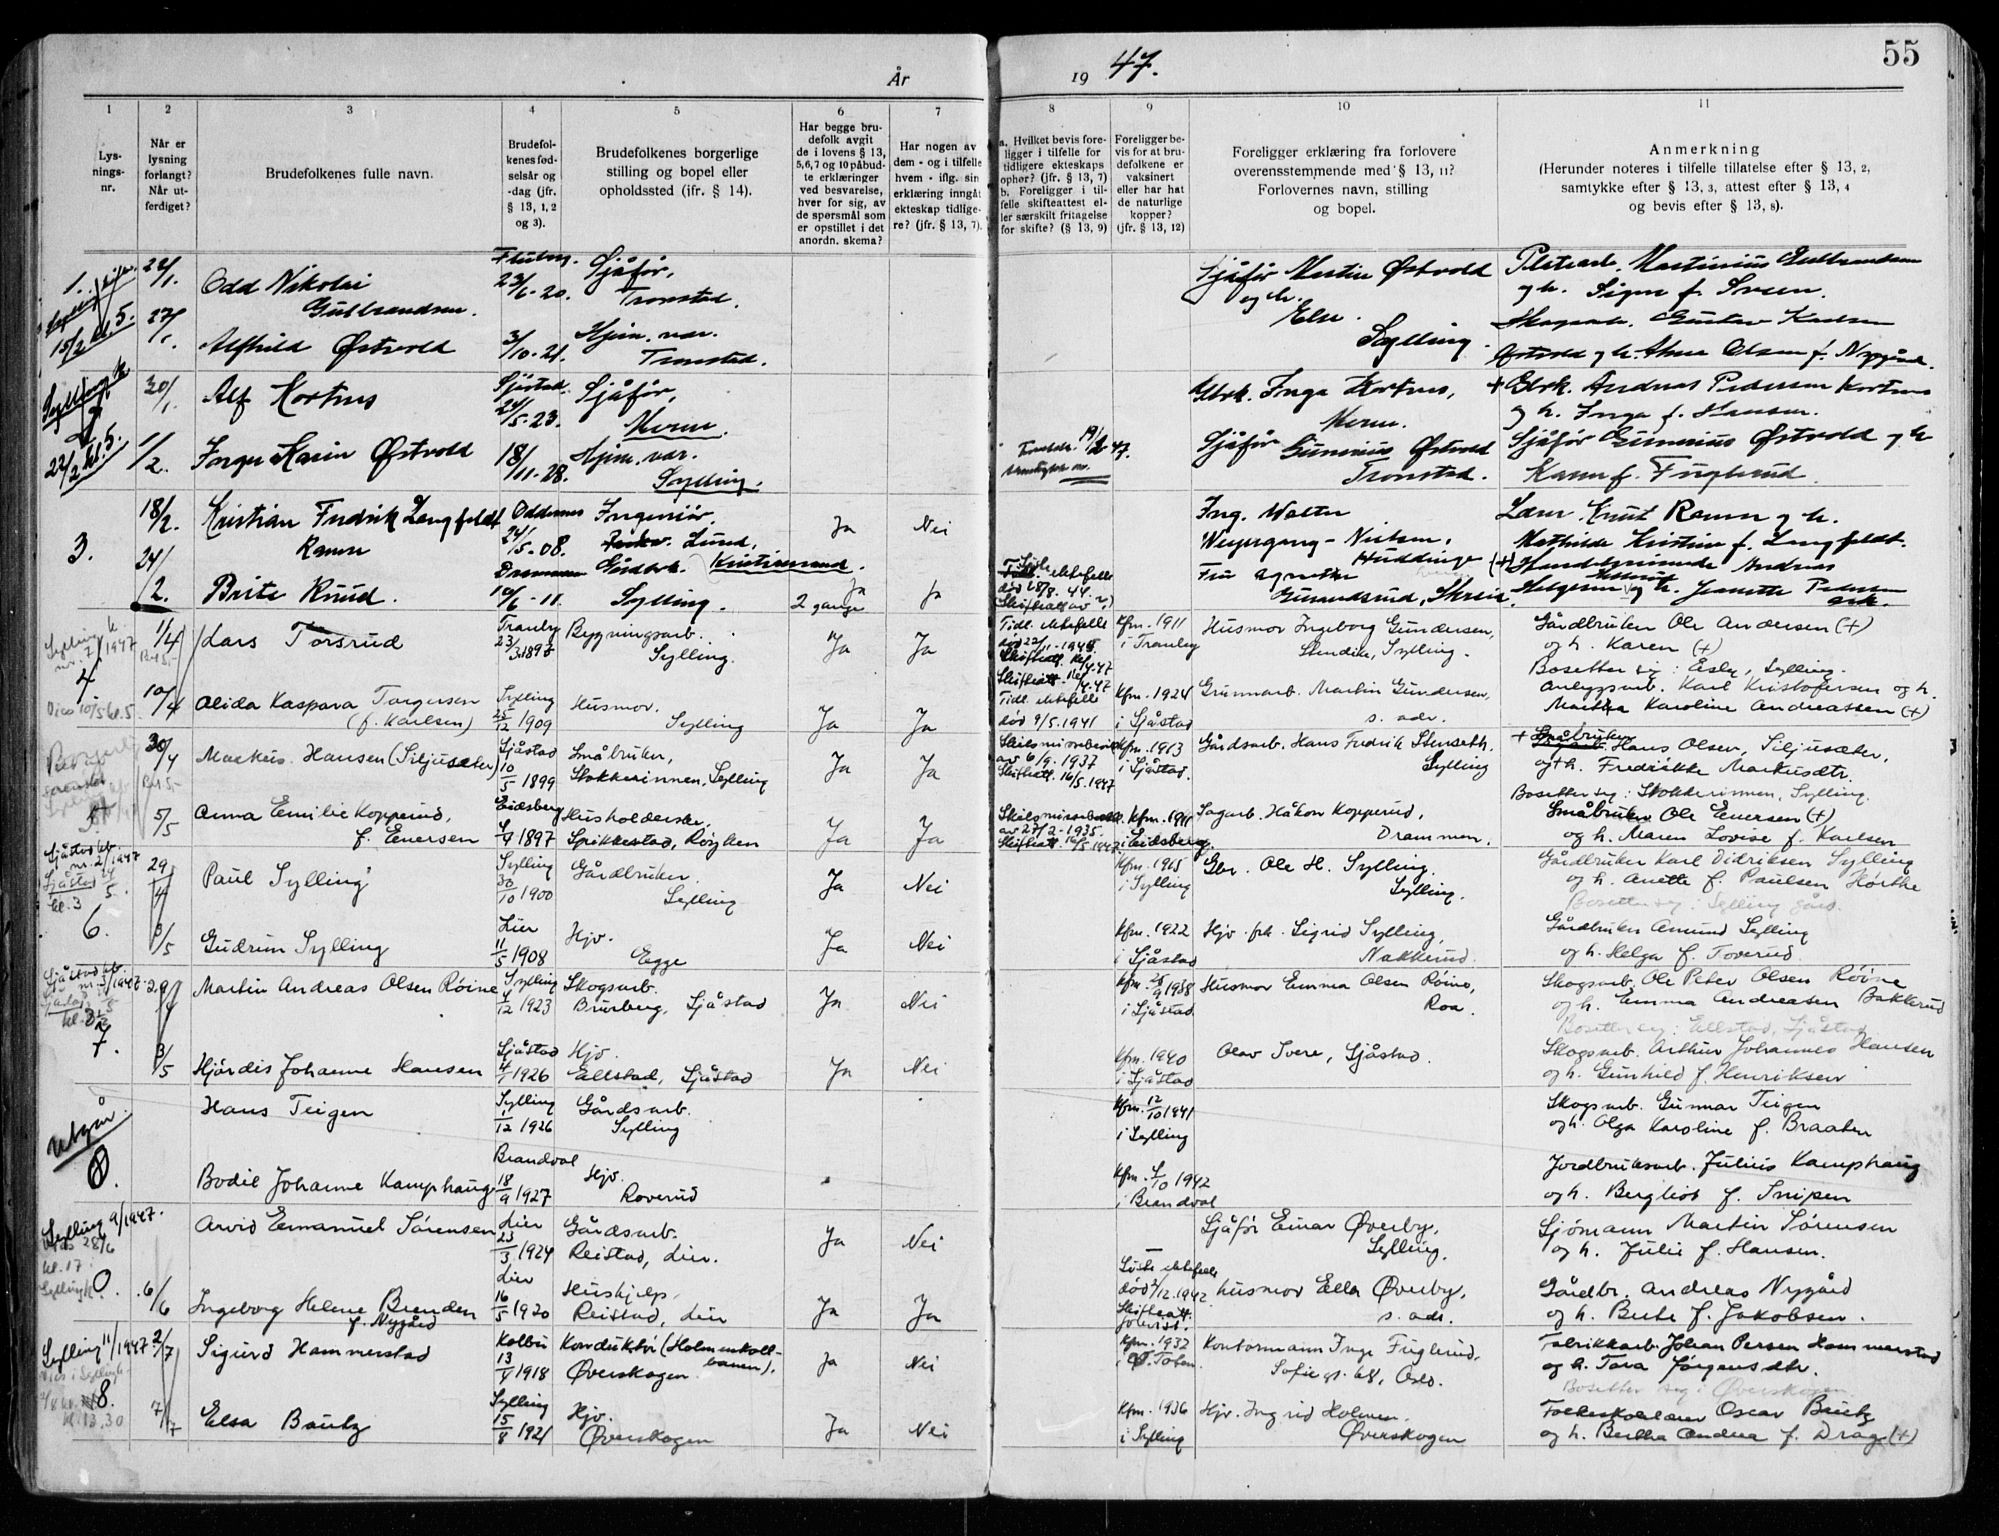 År
19 47.
55
1
2
3
4
5
6
7
8
9
10
11
Lys-
nings-
nr.
Når er
lysning
forlangt?
Når ut-
ferdiget?
Brudefolkenes fulle navn.
Brudefol-
kenes fød-
selsår og
-dag (jfr.
§ 13, 1, 2
og 3).
Brudefolkenes borgerlige
stilling og bopel eller
opholdssted (jfr. § 14).
Har begge bru-
defolk avgit
de i lovens § 13,
5,6,7 og 10 påbud-
te erklæringer
ved besvarelse,
hver for sig, av
de spørsmål som
er opstillet i det
anordn. skema?
Har nogen av
dem - og i tilfelle
hvem - iflg. sin
erklæring inngåt
ekteskap tidlige-
re? (jfr. § 13, 7).
a. Hvilket bevis fore-
ligger i tilfelle for
tidligere ekteskaps
ophør? (jfr. § 13, 7)
b. Foreligger i til-
felle skifteattest el-
ler særskilt fritagelse
for skifte? (§ 13, 9)
Foreligger be-
vis for at bru-
defolkene er
vaksinert
eller har hat
de naturlige
kopper?
(jfr. § 13, 12)
Foreligger erklæring fra forlovere
overensstemmende med § 13, 11?
Forlovernes navn, stilling
og bopel.
Anmerkning
(Herunder noteres i tilfelle tillatelse efter § 13, 2,
samtykke efter § 13, 3, attest efter § 13, 4
og bevis efter § 13, 8).
1.
15/2 kl. 5.
22/1.
27/1.
Odd Nikolai
Gulbrandsen.
23/6-20.
Sjåfør,
Tronstad.
Sjåfør Martin Østvold
og h.
Else.
Sylling.
Martinius Gulbrandsen
og h. Signe f. Sveen.
Alfhild Østvold
3/10-21.
Hjem. vær.
Tronstad.
Gustav Karlsen
Østvold og h. Anna Olsen f. Nygård.
2
22/2 kl. 5.
30/1.
1/2.
Alf Kortnes
Sjåstad.
24/5-23.
Sjåfør,
Meren.
Gbrk. Inga Kortnes,
Meren.
+ Gbrk. Andreas Pedersen Kortnes
og h. Inga f. Hansen.
Inger Karin Østvold
18/11-28.
Hjem. vær.
Sylling.
19/2 47.
Sjåfør Gunerius Østvold
Tronstad.
Sjåfør Gunerius Østvold og h
Karen f. Fuglerud.
3.
18/2.
24/2.
Kristian Fredrik Lengfeldt
Ramse
Oddernes
24/5-08.
Ingeniør,
Lund,
Kristiansand.
Ja
Nei
Ing. Walter
Weyergang-Nielsen,
Huddinge
Lærer Knut Ramse og h.
Mathilde Kristine f. Lengfeldt.
Brite Ruud.
Drammen
10/6-11.
Gudbrk.
Sylling.
Ja
2 gange
Ja
død 28/8. 44.
Fru Agnethe
Gunundsrud, Skreia.
(+) Handelsreisende Andreas
Helgesen og h. Jeanette Pedersen
Sylling k.
nr. 7/1947
4.
1/4
10/4
Lars Torsrud
Tranby
23/3 1895
Bygningsarb.
Sylling.
Ja
Ja
Tidl. ektefelle
Kfm. 1911
i Tranby
Husmor Ingeborg Gundersen,
Stendike, Sylling.
Gårdbruker Ole Andersen (+)
og h. Karen (+)
Bosetter sig: Esby, Sylling.
Alida Kaspara Torgersen
(f. Karlsen)
Sylling
25/12 1909
Husmor.
Sylling
Ja
Ja
Tidl. ektefelle
død 9/5.1941
Kfm. 1924
i Sjåstad
Grunnarb. Martin Gundersen,
s. adr.
Anleggsarb. Karl Kristofersen og h.
Martha Karoline Andreassen (+)
5
30/4
5/5
Markus Hansen (Siljusæter)
Sjåstad
10/5 1899
Småbruker,
Stokkerinnen, Sylling
Ja
Ja
Skilsmissebevill.
av 6/9. 1937
Skifteatt. 16/5.1947
Kfm. 1913
i Sjåstad.
Gårdsarb. Hans Fredrik Stenseth.
Sylling
+ Småbruker
Hans Olsen, Siljusæter,
og h. Fredrikke Markusdtr.
Bosetter sig: Stokkerinnen, Sylling.
Anna Emilie Kopperud,
f. Enersen
Eidsberg
1897
Husholderske,
Spikkestad, Røyken
Ja
Ja
av 27/2-1935.
Kfm. 1911
i Eidsberg
Sagarb. Håkon Kopperud,
Drammen.
Småbruker Ole Enersen (+)
og h. Maren Lovise f. Karlsen
Sjåstad kb.
nr. 2/1947
Sjåstad 24/5.
kl. 3
6.
29/4
3/5
Paul Sylling
Sylling
30/10 1900
Gårdbruker
Sylling
Ja
Nei
Kfm. 1915
i Sylling
Gbr. Ole H. Sylling.
Sylling.
Gårdbruker Karl Didriksen Sylling
og h. Anette f. Paulsen Hørthe
Bosetter sig: Sylling gård.
Gudrun Sylling
Lier
11/5 1908
Hjv.
Egge
Ja
Nei
Kfm. 1922
i Sjåstad
Hjv. frk. Sigrid Sylling,
Nakkerud.
Gårdbruker Amund Sylling
og h. Helga f. Toverud.
Sjåstad kb.
nr. 3/1947.
7.
29/4
3/5
Martin Andreas Olsen Røine
Sylling
4/12 1923
Skogsarb.
Brurberg, Sjåstad
Ja
Nei
Kfm. 25/9 1938
i Sjåstad
Husmor Emma Olsen Røine,
Roa.
Skogsarb. Ole Peter Olsen Røine
og h. Emma Andreasen Bakkerud
Bosetter sig: Ellstad, Sjåstad.
Hjørdis Johanne Hansen
Sjåstad
4/1 1926
Hjv.
Ellstad, Sjåstad
Ja
Nei
Kfm. 1940
i Sjåstad
Olav Svere, Sjåstad.
Skogsarb. Arthur Johannes Hansen
og h. Gunhild f. Henriksen
Utgår.
8.
Hans Teigen
Sylling
1/12 1926
Gårdsarb.
Sylling
Kfm. 12/10 1941
i Sylling
Skogsarb. Gunnar Teigen
og h. Olga Karoline f. Braaten
Bodil Johanne Kamphaug
Brandval
18/9 1927
Hjv.
Roverud
Kfm. 4/10 1942
i Brandval
Jordbruksarb. Julius Kamphaug
og h. Bergliot f. Snipen
Sylling 9/1947.
Vies 28/6
kl. 17
6/6
Arvid Emanuel Sørensen
Lier
23/3 1924
Gårdsarb.
Reistad, Lier.
Ja
Nei
Sjåfør Einar Øverby,
Sylling.
Sjømann Martin Sørensen
og h. Julie f. Hansen.
Ingeborg Helene Brenden
f. Nygård
Lier
16/5 1920
Hushjelp,
Reistad, Lier
Ja
Ja
Siste ektefelle
død 2/12.1942
Husmor Ella Øverby,
s. adr.
Gårdbr. Andreas Nygård
og h. Beate f. Jakobsen.
Sylling 11/1947
8.
kl. 13.30
2/7
7/7
Sigurd Hammerstad
Kolbu
13/1 1918
Konduktør (Holmenkoll-
banen),
Øverskogen
Ja
Nei
Kfm. 1932
i Ø. Toten
Kontormann Inge Fuglerud,
Sofies gt. 68, Oslo.
Fabrikkarb. Johan Persen Hammerstad
og h. Tora Jørgensdtr.
Bosetter sig: Øverskogen.
Elsa Bautz
Sylling
15/8 1921
Hjv.
Øverskogen
Ja
Nei
Kfm. 1936
i Sylling
Hjv. Ingrid Holmen.
Øverskogen
Folkeskolelærer Oscar Bautz
og h. Bertha Andrea f. Drag (+)